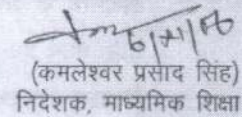 (कमलेश्वर प्रसाद सिंह)
निदेशक, माध्यमिक शिक्षा